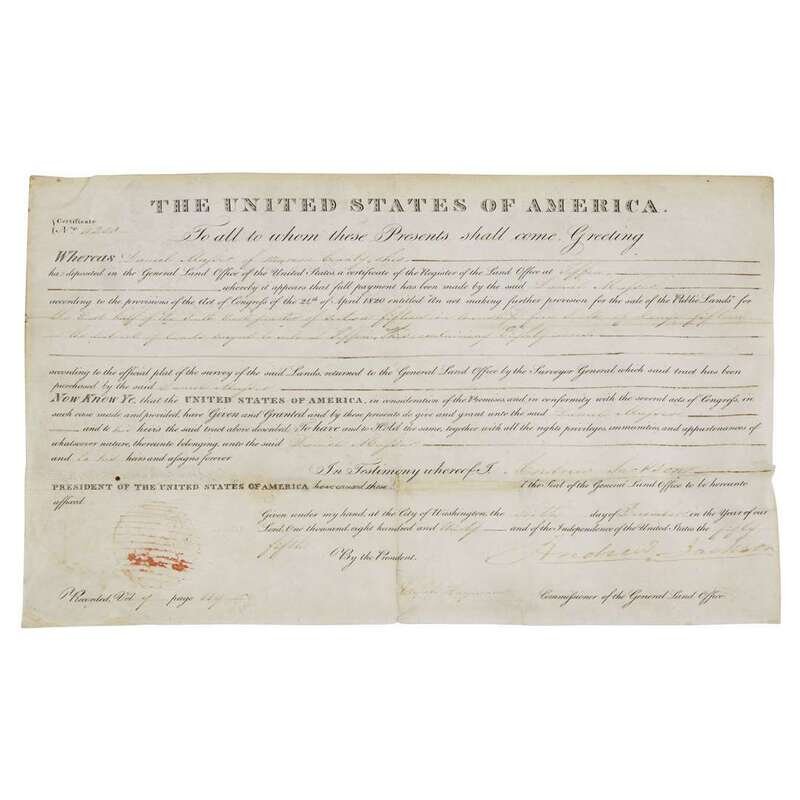 THE UNITED STATES OF AMERICA.
Certificate
No.
To all to whom these Presents shall come, Greeting
Whereas Daniel of County Ohio
has deposited in the General Land Office of the United States, a certificate of the Register of the Land Office at Tiffin
whereby it appears that full payment has been made by the said Daniel
according to the provisions of the Act of Congress of the 24th of April 1820 entitled "An act making further provision for the sale of the Public Lands" for
the East half of the quarter of Section fifteen in
the district of Lands subject to sale at Tiffin, Ohio, containing Eighty acres
according to the official plat of the survey of the said Lands, returned to the General Land Office by the Surveyor General which said tract has been
purchased by the said Daniel
Now Know Ye, that the UNITED STATES OF AMERICA, in consideration of the Promises, and in conformity with the several acts of Congress, in
such case made and provided, have Given and Granted and by these presents do give and grant unto the said Daniel
and to his heirs the said tract above described. To have and to Hold the same, together with all the rights privileges, immunities, and appurtenances of
whatsoever nature, thereunto belonging, unto the said Daniel
and to his heirs and assigns forever
In Testimony whereof I, Andrew Jackson
PRESIDENT OF THE UNITED STATES OF AMERICA have caused these the Seal of the General Land Office to be hereunto
affixed.
Given under my hand, at the City of Washington, the day of December in the Year of our
Lord, One thousand eight hundred and thirty and of the Independence of the United States the fifty
fifth
By the President.
Andrew Jackson
Recorded, Vol. page
Commissioner of the General Land Office